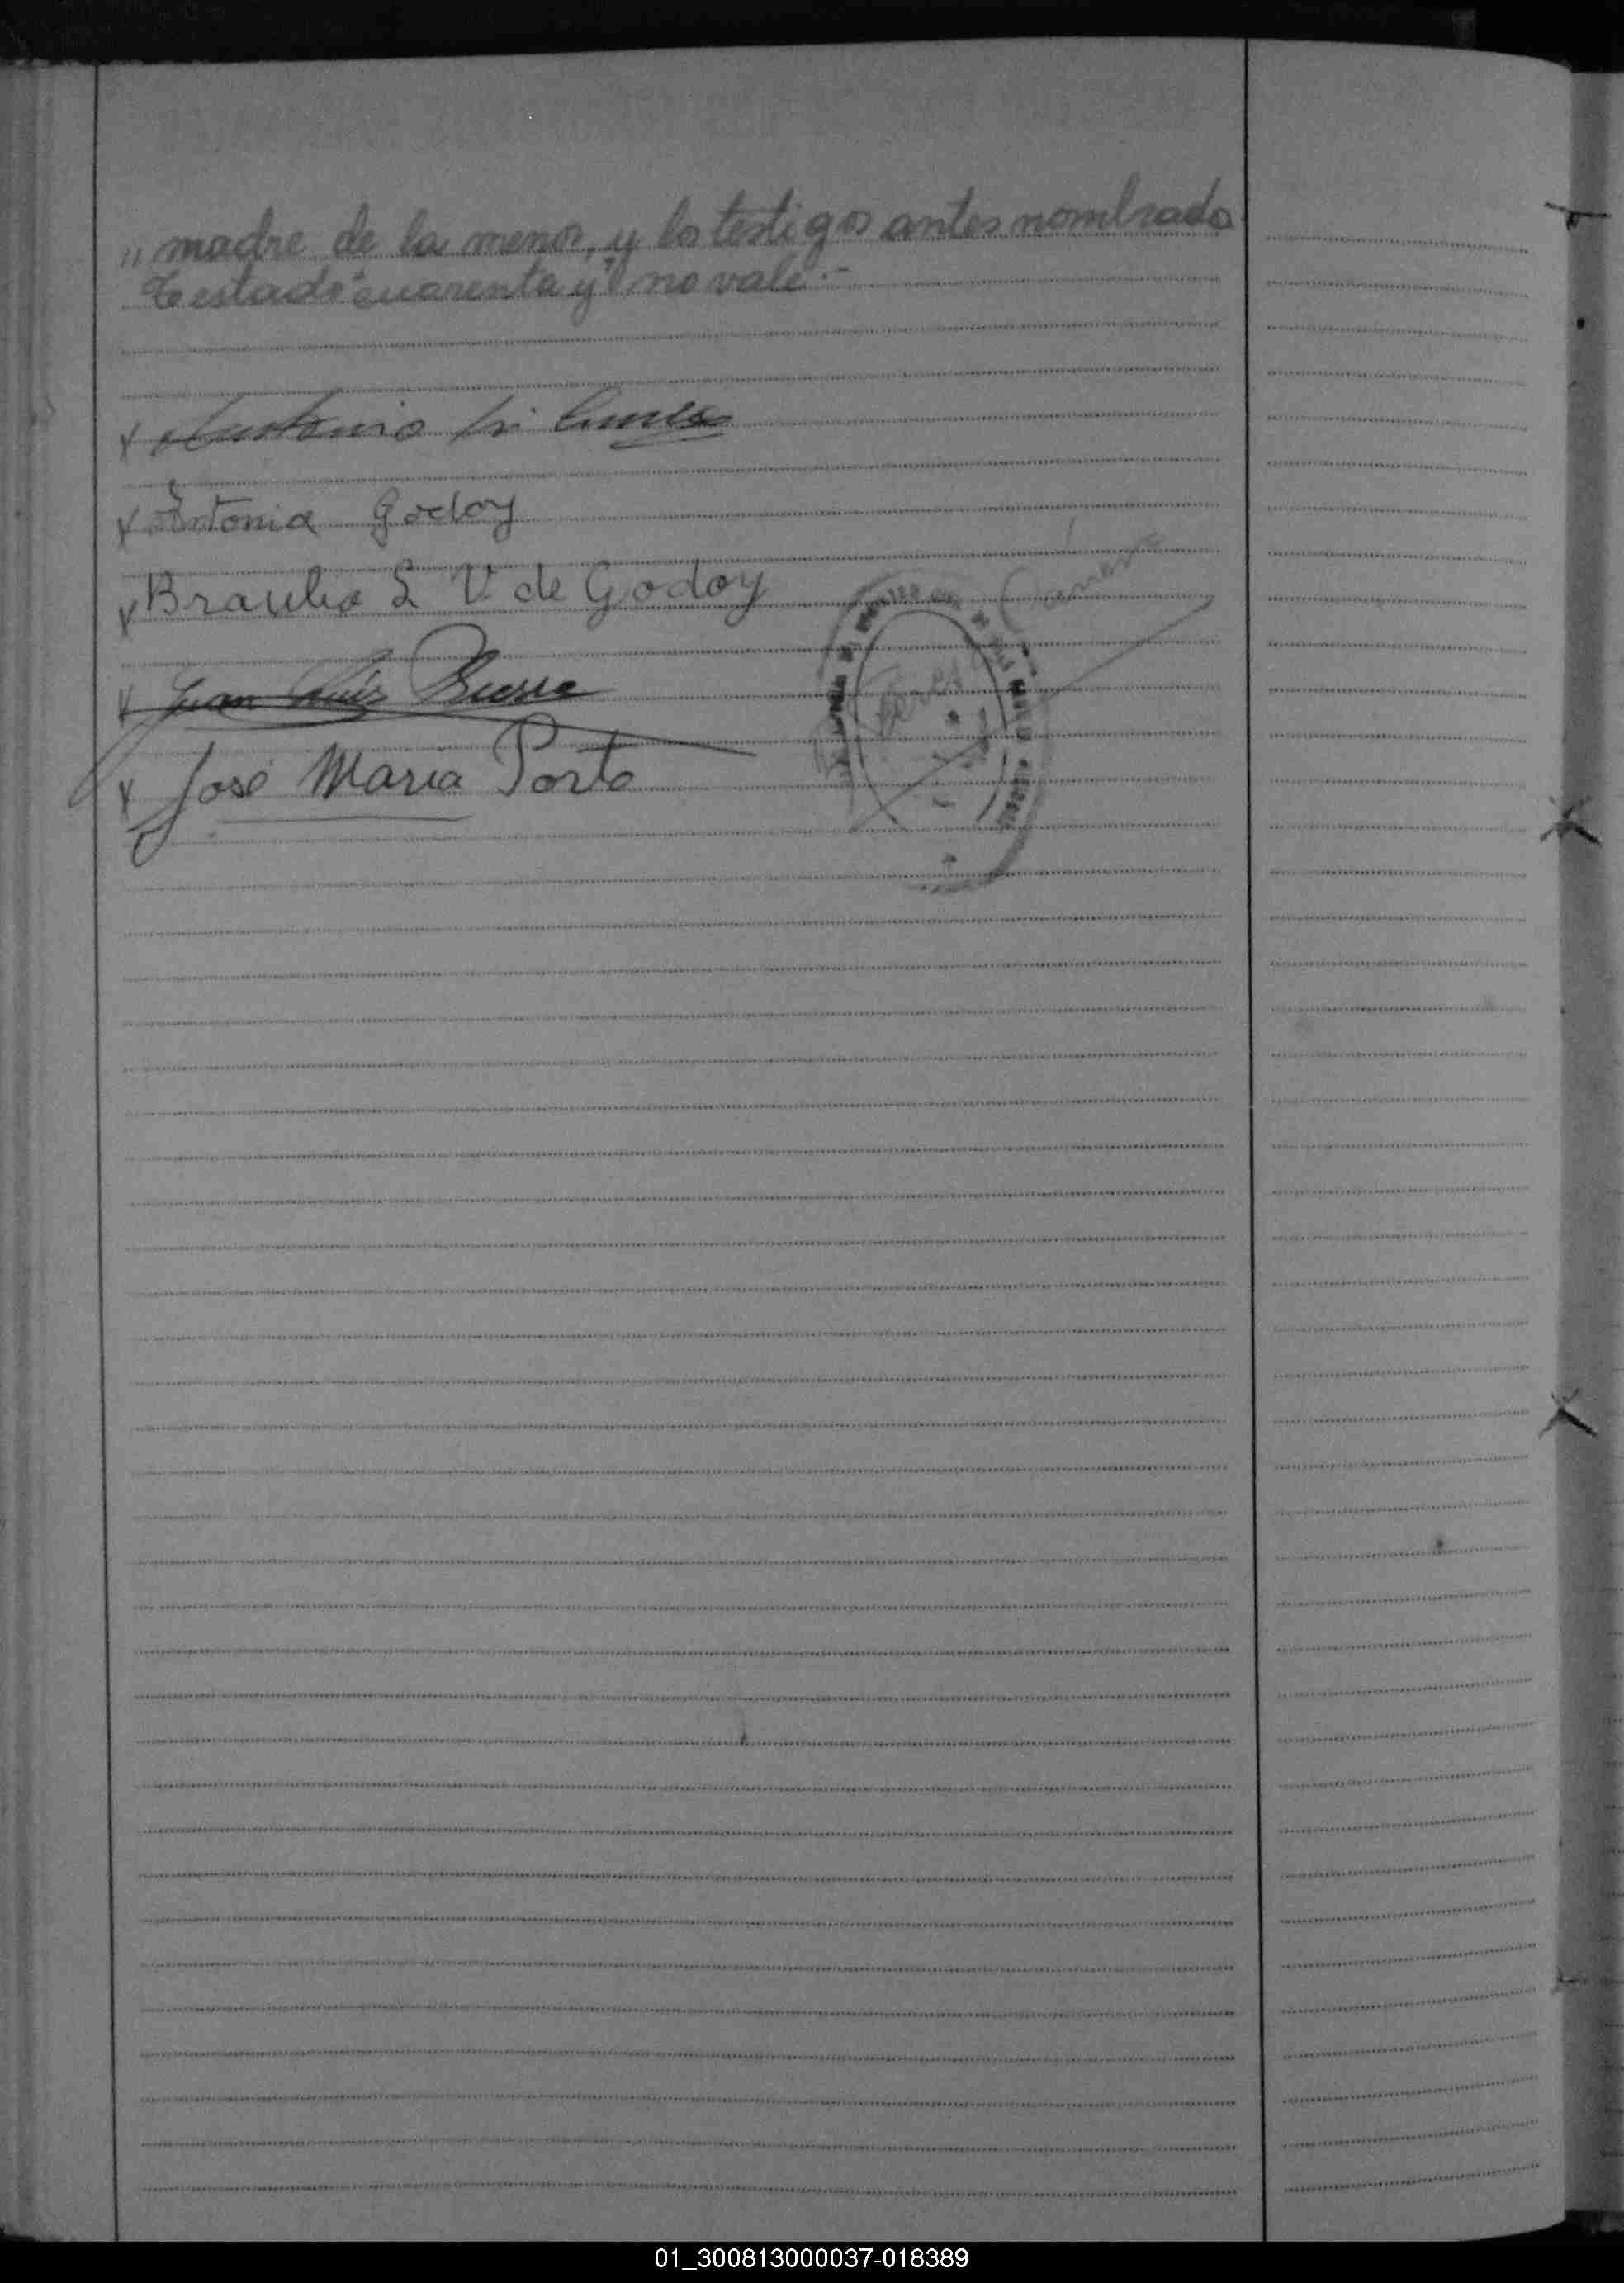 " madre de la menor, y los testigos antes nombrado
Testado "cuarenta y" no vale.-
x Antonio
x Antonia Godoy
x Braulia S. V. de Godoy
x Juan Luis
x José María Porto
01_300813000037-018389